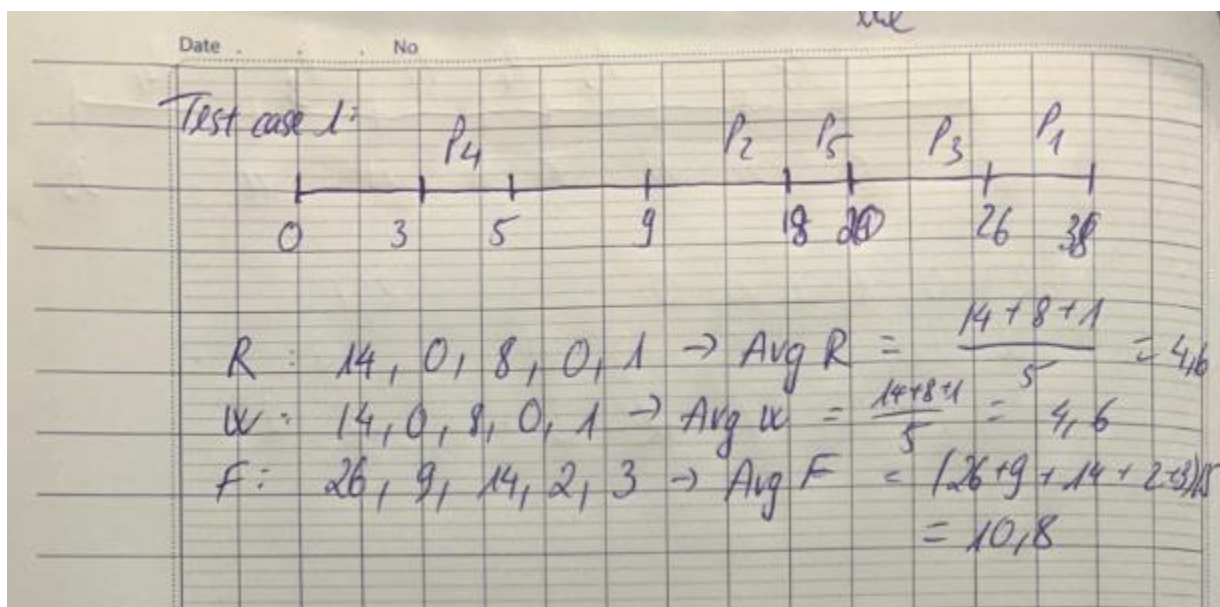 Date . . . No
Test case 1:
P4 P2 P5 P3 P1
0 3 5 9 18 20 26 38
R : 14, 0, 8, 0, 1 → Avg R = 14 + 8 + 1 / 5 = 4,6
W : 14, 0, 8, 0, 1 → Avg W = 14+8+1 / 5 = 4,6
F : 26, 9, 14, 2, 3 → Avg F = (26+9+14+2+3)/5
= 10,8